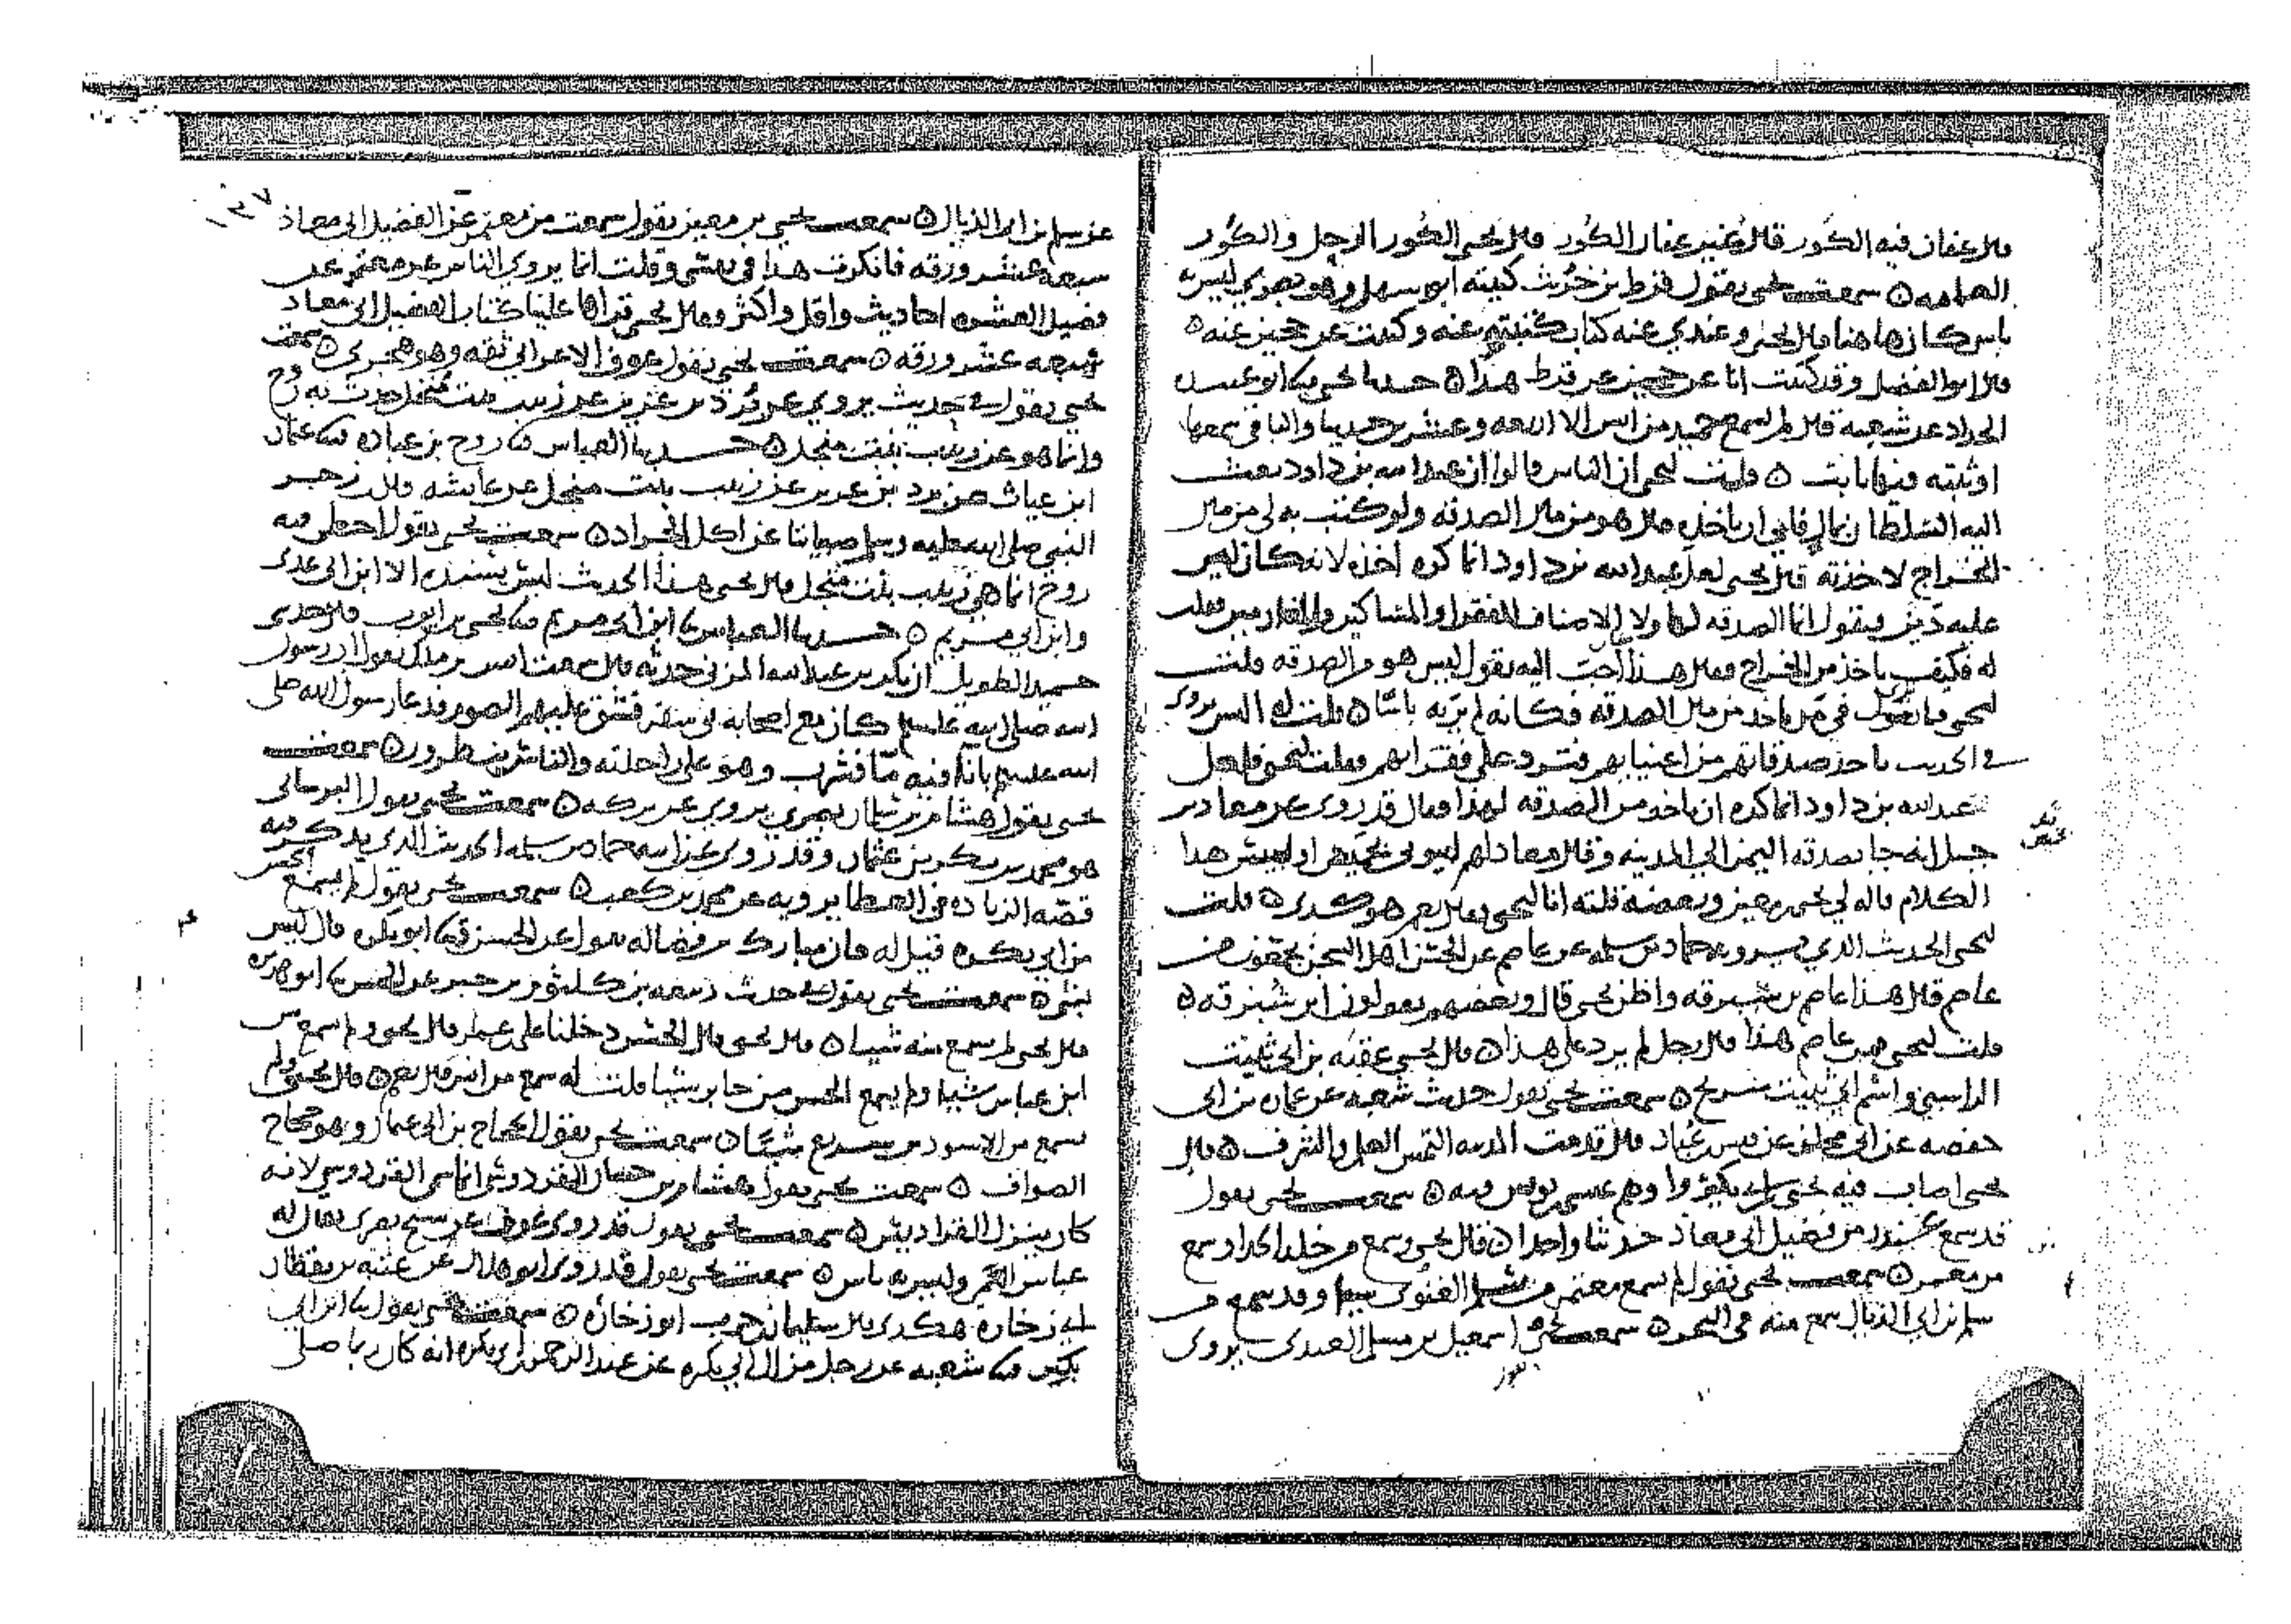 قال عفان فيه الكور قال غير عفان الكور قال يحيى الكور الرحل والكور
العمامه ۞ سمعت يحيى يقول قرط بن حريث كنيته ابو سهل وهو بصري ليس به
باس كان هاهنا قال يحيى وعندي عنه كتاب كتبته عنه وكتبت عن حجين عنه ۞
قال ابو الفضل وقد كتبت انا عن حجين عن قرط هذا ۞ حدثنا يحيى نا ابو عبيده
الحداد عن شعبة قال لم يسمع حميد من انس الا اربعه وعشرين حديثا والباقي سمعها
او ثبته فيها ثابت ۞ قلت ليحيى ان الناس قالوا ان عبد الله بن داود بعث
اليه السلطان بمال فابى ان ياخذ قال هو من مال الصدقه ولو كتب به لي من مال
الخراج لاخذته قال يحيى لعل عبد الله بن داود انما كره اخذه لانه كان ليس
عليه دين ويقول انما الصدقه لهاولا الاصناف الفقرا والمساكين والغارمين فقلت
له فكيف ياخذ من الخراج فقال هذا احب اليه يقول ليس هو من الصدقه قلت
ليحيى ما تقول في من ياخذ من مال الصدقة فكانه لم ير به باسا ۞ قلت له اليس يروى
في الحديث تاخذ صدقاتهم من اغنيايهم فترد على فقرايهم فقلت ليحيى فلعل
عبد الله بن داود انما كره ان ياخذ من الصدقه لهذا فقال قد روى عن معاذ بن
جبل انه جا بصدقه اليمن الى المدينه وقال معاذ لهم ايتوني بخميص او لبيس هذا
الكلام قاله لي يحيى بن معين وبعضه قلته انا ليحيى فقال نعم هو كذى ۞ قلت
ليحيى الحديث الذي يرويه حماد بن سلمه عن عاصم عن الحسن اهل السجن يجمعون من
عاصم قال هذا عاصم بن شبرقه واظن يحيى قال وبعضهم يقولون ابن شبرقه ۞
قلت ليحيى من عاصم هذا قال رجل لم يرد على هذا ۞ قال يحيى عقبه بن ابي ثبيت
الراسبي واسم ابي ثبيت سريج ۞ سمعت يحيى يقول حديث شعبه عن عمان بن ابي
حفصه عن ابي مجلز عن قيس بن عباد قال قدمت المدينه التمس العلم والشرف ۞ قال
يحيى اصاب فيه يحيى بن ابي بكير واوهم عيسى بن يونس فيه ۞ سمعت يحيى يقول
قد سمع غندر من فضيل ابي معاذ حديثا واحدا ۞ قال يحيى وسمع مخلد الحداد سمع
من معمر ۞ سمعت يحيى يقول لم يسمع معتمر من سلم العلوى شيا وقد سمع من
سلم بن ابي الذيال سمع منه في البحر ۞ سمعت يحيى اسمعيل بن مسلم العبدي يروى
عن سلم بن ابي الذيال ۞ سمعت يحيى بن معين يقول سمعت من معتمر عن الفضيل ابي معاذ
سبعه عشر ورقه فانكرت هذا في نفسي وقلت انما يروي الناس عن معتمر عن
فضيل العشره احاديث واقل واكثر وقال يحيى قراها علينا كتاب الفضيل ابي معاذ
سبعه عشر ورقه ۞ سمعت يحيى يقول عوف الاعرابي ثقه وهو هجري ۞ سمعت
يحيى يقول في حديث يروي عن برد بن عرين عن زينب بنت منخل حدث به روح
وانما هو عن زينب بنت منجل ۞ حدثنا العباس نا روح بن عباده نا عثمان
ابن غياث عن برد بن عرين عن زينب بنت منخل عن عايشه قالت زجر
النبي صلى الله عليه وسلم صبياننا عن اكل الجراد ۞ سمعت يحيى يقول اخطا فيه
روح انما هي زينب بنت منجل قال يحيى هذا الحديث ليس يسنده الا ابن ابي عدى
وابن ابي مريم ۞ حدثنا العباس نا ابن ابي مريم نا يحيى بن ايوب قال حدثني
حميد الطويل ان بكر بن عبد الله المزني حدثه قال سمعت انس بن ملك يقول ان رسول
الله صلى الله عليه وسلم كان مع اصحابه في سفر فشق عليهم الصوم فدعا رسول الله صلى
الله عليه وسلم باناء فيه ما فشرب وهو على راحلته والناس ينظرون ۞ سمعت
يحيى يقول هشام بن سلمان بصري يروى عن بركه ۞ سمعت يحيى يقول البرساني
هو محمد بن بكر بن عثمان وقد روى عن ابيه حماد بن سلمه الحديث الذي يذكر فيه
قصه الزياده في العطا يرويه عن محمد بن كعب ۞ سمعت يحيى يقول لم يسمع الحسن
من ابي بكره قيل له فان مبارك بن فضاله يقول عن الحسن نا ابو بكره قال ليس
بشى ۞ سمعت يحيى يقول في حديث ربيعه بن كلثوم بن جبر عن الحسن نا ابو هريره
قال يحيى لم يسمع منه شيا ۞ قال يحيى قال الحسن دخلنا على قال يحيى ولم يسمع من
ابن عباس شيا ولم يسمع الحسن من جابر شيا قلت له سمع من انس قال نعم ۞ قال يحيى ولم
يسمع من الاسود بن سريع شيئا ۞ سمعت يحيى يقول الحجاج بن ابي عثمان وهو حجاج
الصواف ۞ سمعت يحيى يقول هشام بن حسان القردوسي انما سمى القردوسي لانه
كان ينزل القراديس ۞ سمعت يحيى يقول قد روى عوف عن شيخ بصرى يقال له
عباس العمي وليس به باس ۞ سمعت يحيى يقول قد روى ابو هلال عن عتبه بن يقظان
ابي زحاره هكذى قال سليمان بن حرب ابو زحاره ۞ سمعت يحيى يقول نا ابن ابي
بكير نا شعبه عن رجل من ال ابي بكره عن عبد الرحمن بن ابي بكره انه كان ربما صلى